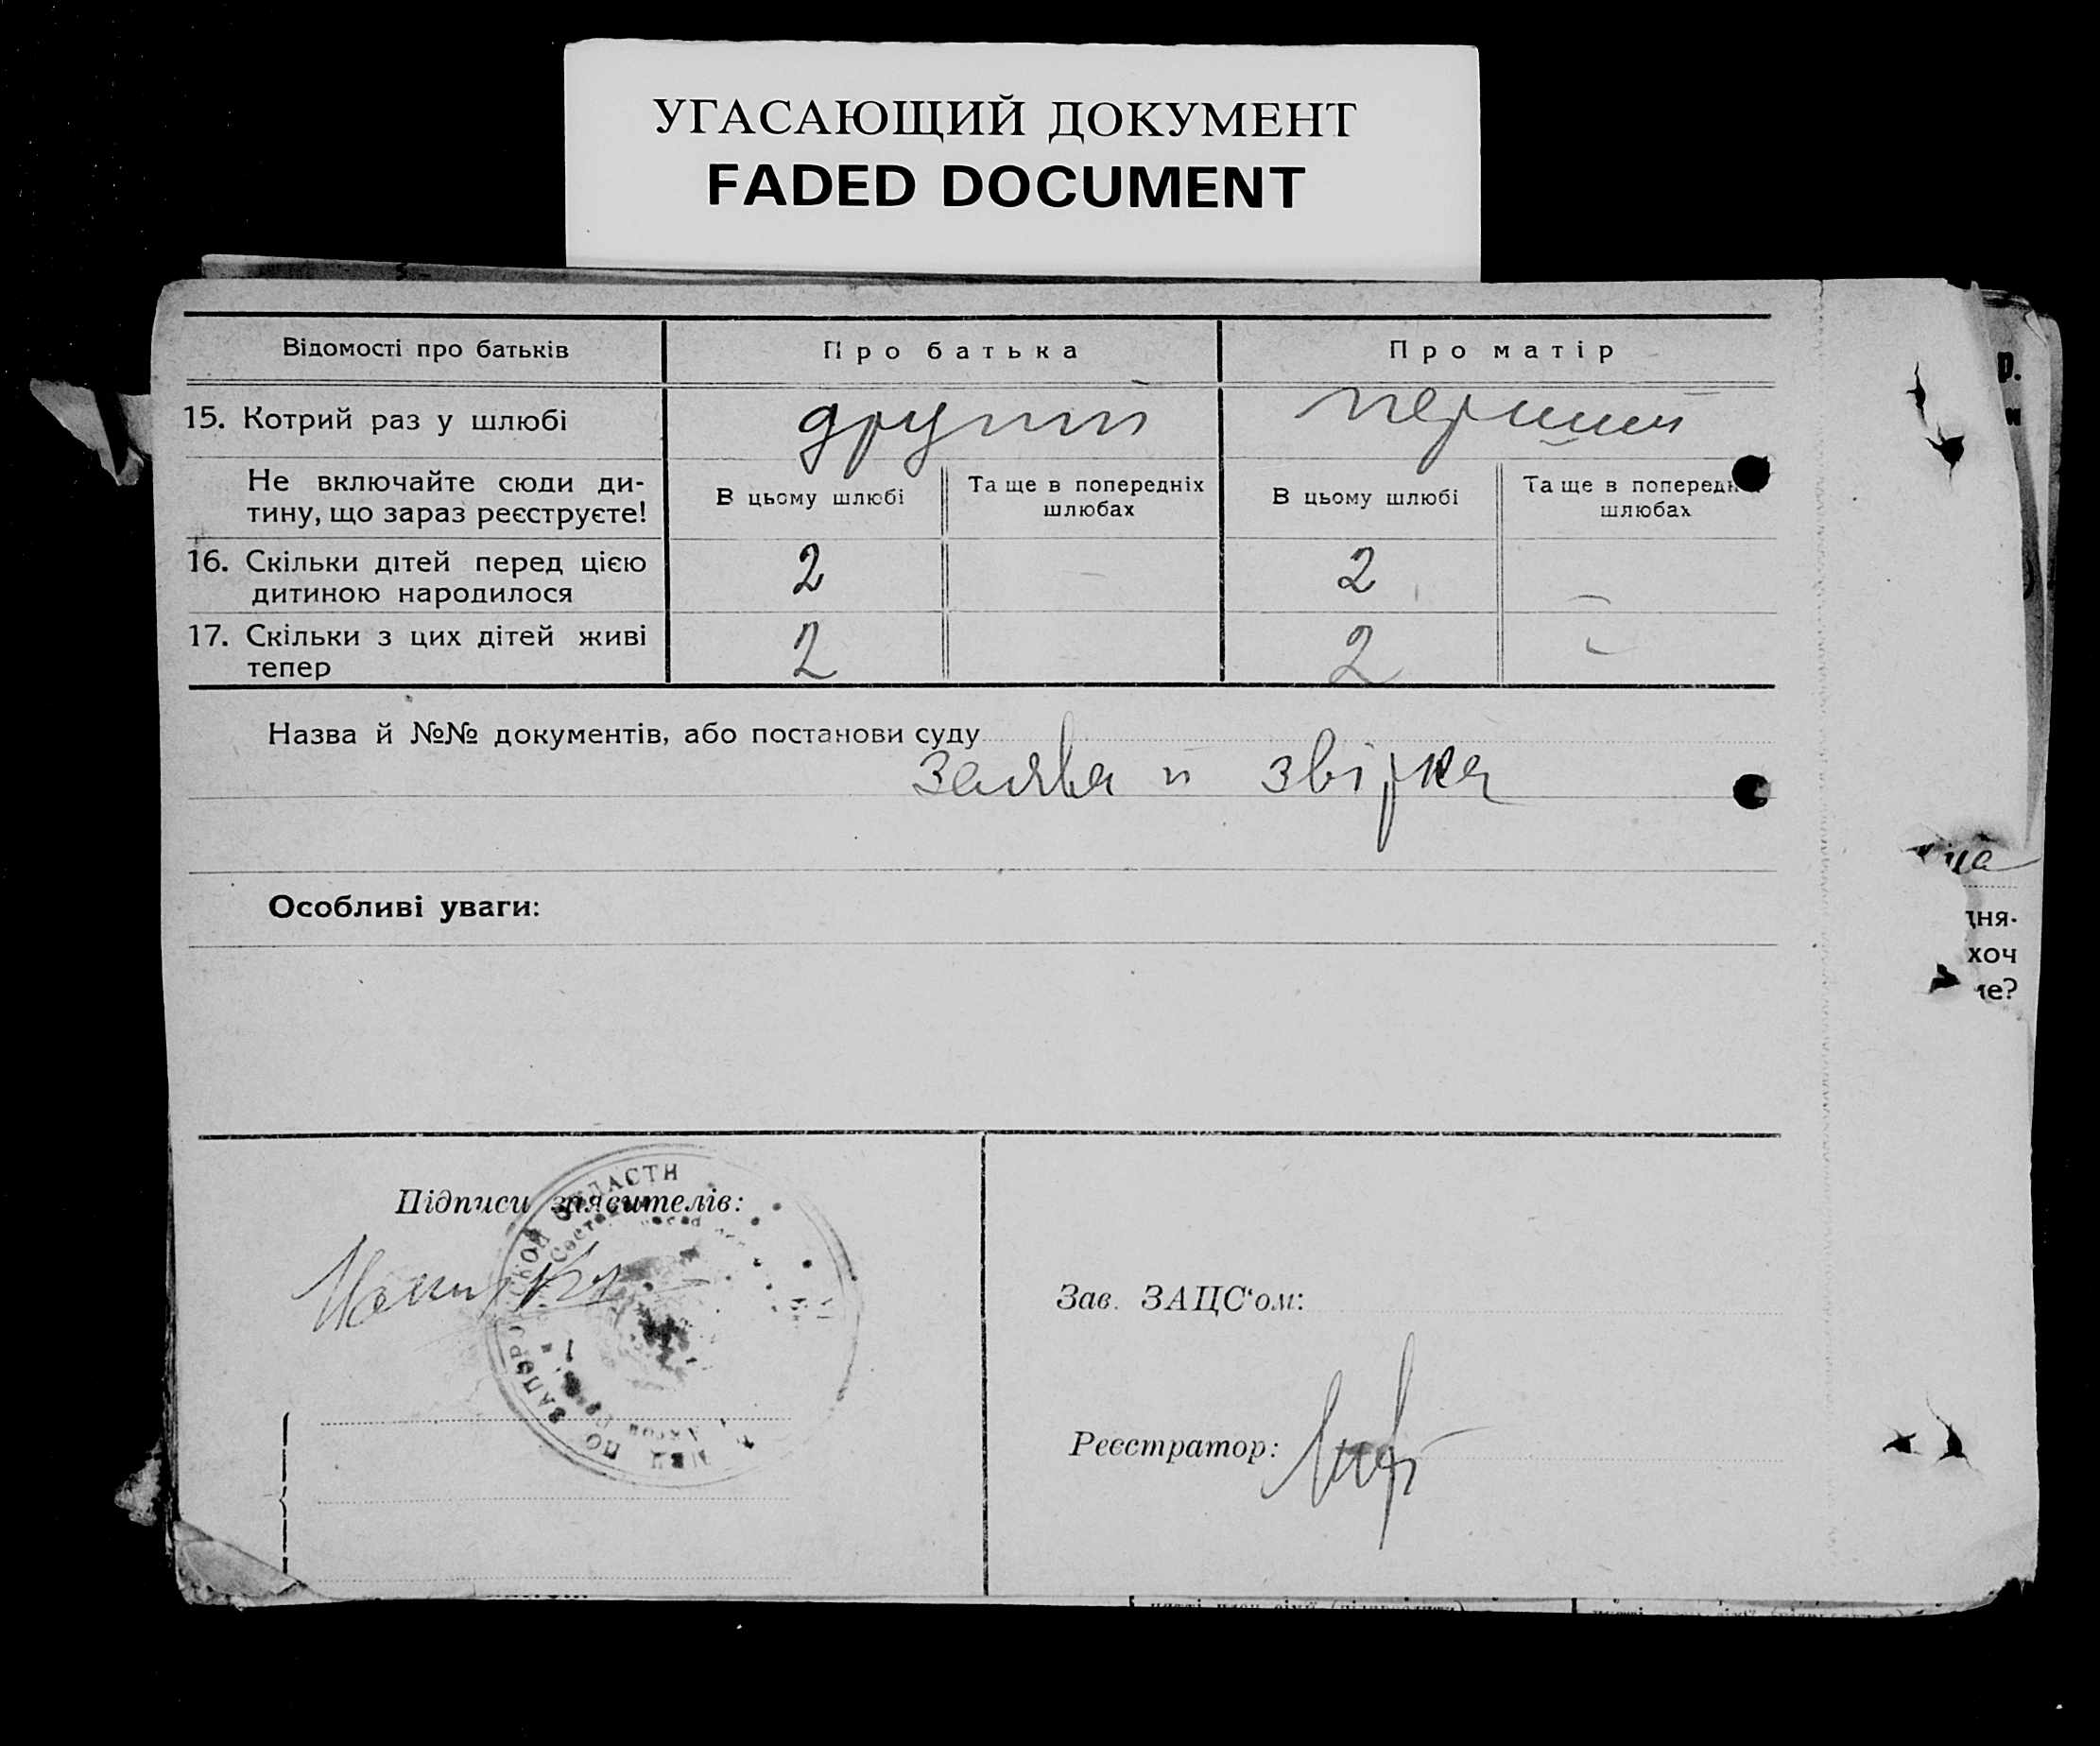 УГАСАЮЩИЙ ДОКУМЕНТ
FADED DOCUMENT
Відомості про батьків
Про батька
Про матір
15. Котрий раз у шлюбі
другий
перший
Не включайте сюди ди-
тину, що зараз реєструєте!
В цьому шлюбі
Та ще в попередніх
шлюбах
В цьому шлюбі
Та ще в поперед
шлюбах
16. Скільки дітей перед цією
дитиною народилося
2
2
–
17. Скільки з цих дітей живі
тепер
2
2
–
Назва й №№ документів, або постанови суду
Заява й звірка
Особливі уваги:
Підписи заявителів:
ПО ЗАПОРО КОЙ ОБЛАСТИ
Зав. ЗАЦС‘ом:
Реєстратор:
р.
и
на
дня-
хоч
не?